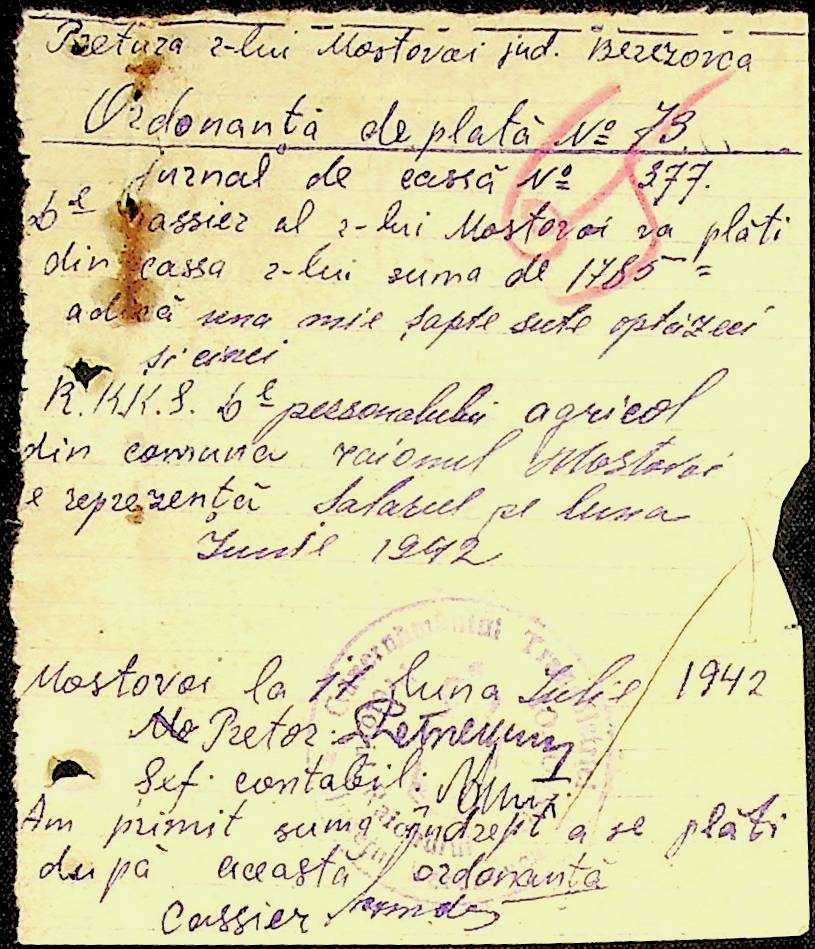 Pretura r-lui Mostovoi jud. Berezovca
Ordonanță de plată № 73
jurnal de cassă № 377.
65
Dl cassier al r-lui Mostovoi va plăti
din cassa r-lui suma de 1785 =
adică una mie șapte sute optăzeci
și cinci
R.KK.S. Dl personalului agricol
din comuna raionul Mostovoi
e reprezență Salarul pe luna
Iunie 1942
Guvernământul Transnistriei
Mostovoi la 17 luna Iulie 1942
Pretor.
Șef. contabil.
Am primit suma îndrept a se plăti
după această ordonanță
Cassier